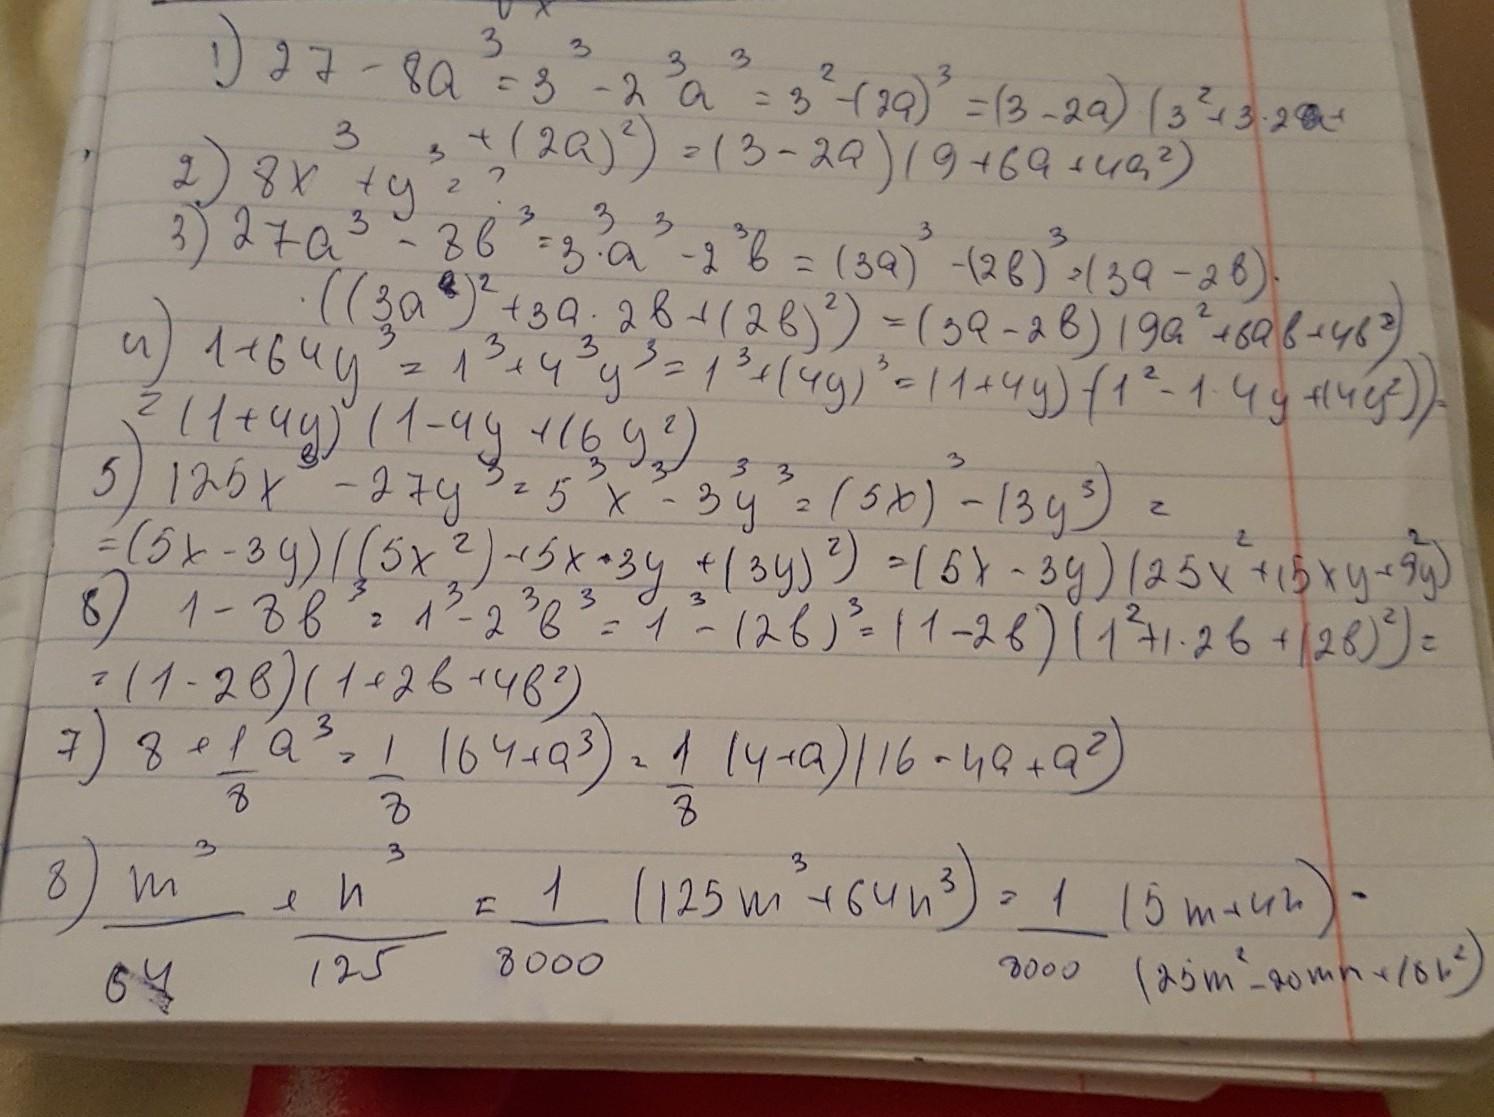 1) 27 - 8a³ = 3³ - 2³a³ = 3² - (2a)³ = (3 - 2a) (3² + 3·2a +
+ (2a)²) = (3 - 2a) (9 + 6a + 4a²)
2) 8x³ + y³ = ?
3) 27a³ - 8b³ = 3³·a³ - 2³b = (3a)³ - (2b)³ = (3a - 2b)·
·((3a)² + 3a·2b + (2b)²) = (3a - 2b) (9a² + 6ab + 4b²)
4) 1 + 64y³ = 1³ + 4³y³ = 1³ + (4y)³ = (1 + 4y)·(1² - 1·4y + (4y²)) =
= (1 + 4y) (1 - 4y + 16y²)
5) 125x³ - 27y³ = 5³x³ - 3³y³ = (5x)³ - (3y³) =
= (5x - 3y) ((5x²) + 5x·3y + (3y)²) = (5x - 3y) (25x² + 15xy + 9y²)
6) 1 - 8b³ = 1³ - 2³b³ = 1³ - (2b)³ = (1 - 2b) (1² + 1·2b + (2b)²) =
= (1 - 2b) (1 + 2b + 4b²)
7) 8 + 1/8 a³ = 1/8 (64 + a³) = 1/8 (4 + a) (16 - 4a + a²)
8) m³/64 + n³/125 = 1/8000 (125m³ + 64n³) = 1/8000 (5m + 4n)·
(25m² - 20mn + 16n²)